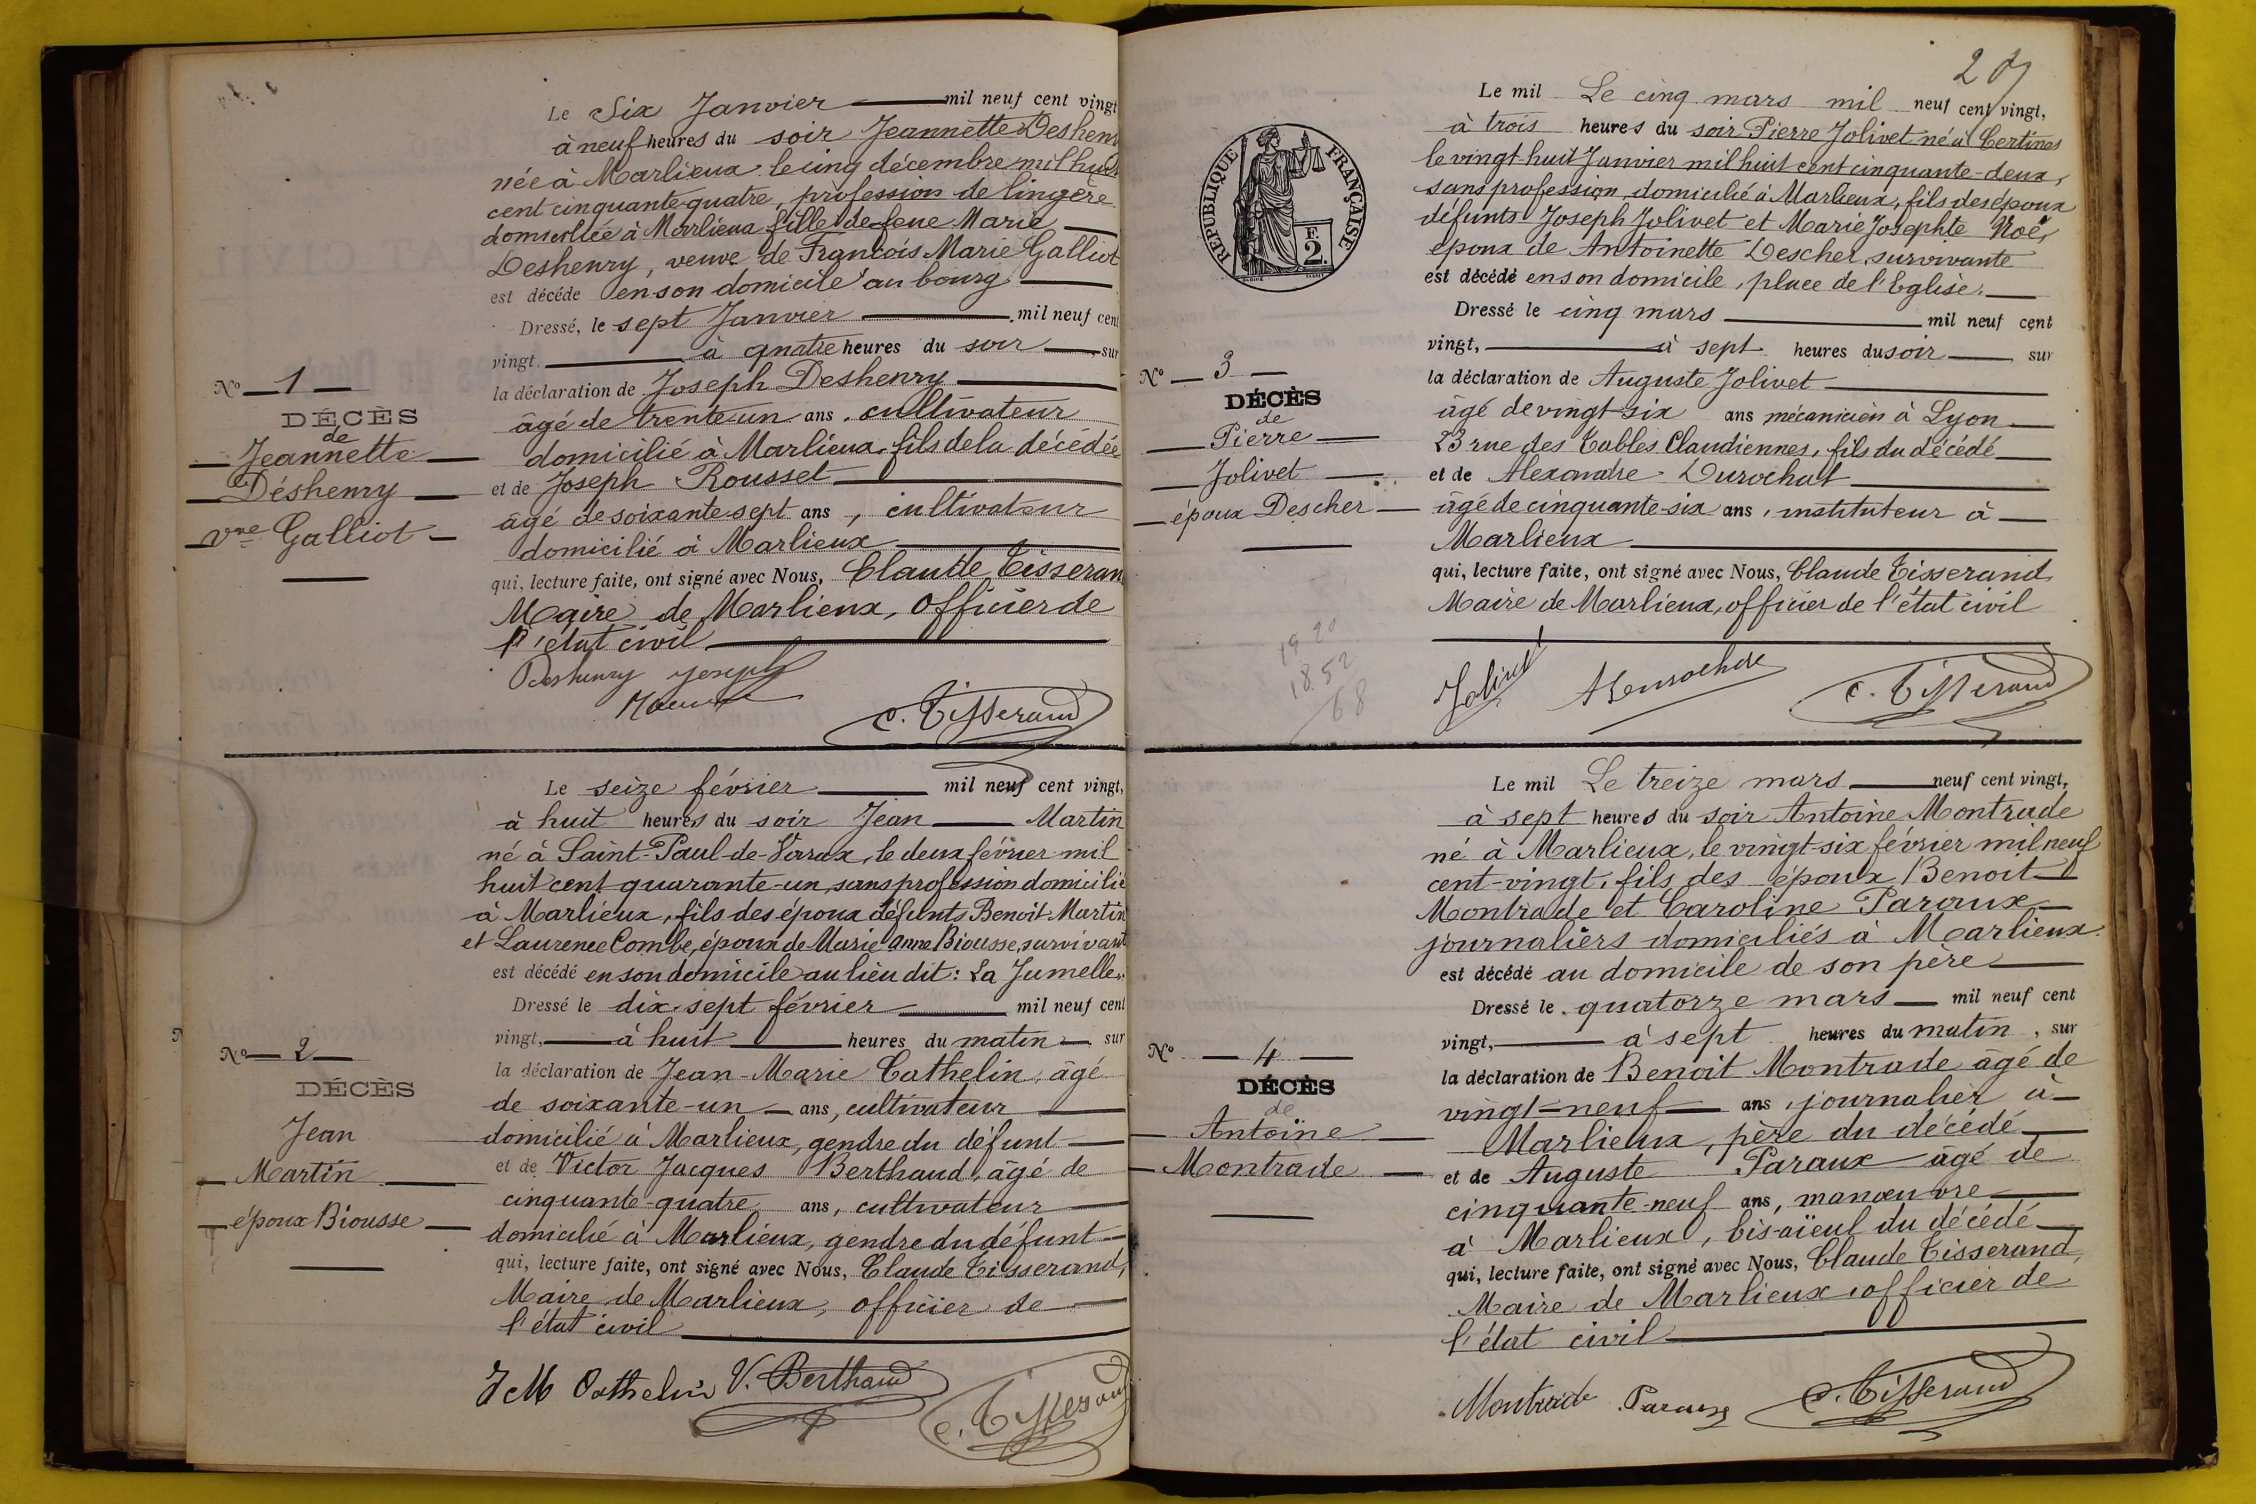 Le Six Janvier mil neuf cent vingt
à neuf heures du soir Jeannette Deshenr
née à Marlieux le cinq décembre mil huit
cent cinquante-quatre, profession de lingère
domiciliée à Marlieux fille de feue Marie
Deshenry, veuve de François Marie Galliot
est décéde en son domicile au bourg
Dressé, le sept Janvier mil neuf cent
vingt à quatre heures du soir sur
la déclaration de Joseph Deshenry
âgé de trente-un ans, cultivateur
domicilié à Marlieux, fils de la décédée
et de Joseph Rousset
âgé de soixante-sept ans, cultivateur
domicilié à Marlieux
qui, lecture faite, ont signé avec Nous, Claude Tisseran
Maire de Marlieux, officier de
l'état civil
Deshenry Joseph
C. Tisserand
N° 1
DÉCÈS
de
Jeannette
Déshenry
Vve Galliot
Le seize février mil neuf cent vingt,
à huit heures du soir Jean Martin
né à Saint-Paul-de-Varax, le deux février mil
huit cent quarante-un, sans profession domicilié
à Marlieux, fils des époux défunts Benoit Martin
et Laurence Combe, époux de Marie Anne Biousse, survivant
est décédé en son domicile au lieu dit : La Jumelle.
Dressé le dix-sept février mil neuf cent
vingt, à huit heures du matin, sur
la déclaration de Jean-Marie Cathelin, âgé
de soixante-un ans, cultivateur
domicilié à Marlieux, gendre du défunt
et de Victor Jacques Berthaud, âgé de
cinquante-quatre ans, cultivateur
domicilié à Marlieux, gendre du défunt
qui, lecture faite, ont signé avec Nous, Claude Tisserand,
Maire de Marlieux, officier de
l'état civil
J M Cathelin V. Berthaud C. Tisserand
N° 2
DÉCÈS
Jean
Martin
époux Biousse
RÉPUBLIQUE FRANÇAISE
F.
2.
Le mil Le cinq mars mil neuf cent vingt,
à trois heures du soir Pierre Jolivet né à Certines
le vingt-huit Janvier mil huit cent cinquante-deux,
sans profession, domicilié à Marlieux, fils des époux
défunts Joseph Jolivet et Marie Josephte Noël,
époux de Antoinette Descher, survivante
est décédé en son domicile, place de l'Eglise.
Dressé le cinq mars mil neuf cent
vingt, à sept heures du soir, sur
la déclaration de Auguste Jolivet
âgé de vingt-six ans mécanicien à Lyon
23 rue des Tables Claudiennes, fils du décédé
et de Alexandre Durochat
âgé de cinquante-six ans, instituteur à
Marlieux
qui, lecture faite, ont signé avec Nous, Claude Tisserand
Maire de Marlieux, officier de l'état civil
Jolivet
C. Tisserand
N° 3
DÉCÈS
de
Pierre
Jolivet
époux Descher
1920
1852
68
Le mil Le treize mars neuf cent vingt,
à sept heures du soir Antoine Montrade
né à Marlieux, le vingt-six février mil neuf
cent-vingt, fils des époux Benoit
Montrade et Caroline Paraux
journaliers domiciliés à Marlieux
est décédé au domicile de son père
Dressé le quatorze mars mil neuf cent
vingt, à sept heures du matin, sur
la déclaration de Benoit Montrade âgé de
vingt-neuf ans, journalier à
Marlieux, père du décédé
et de Auguste Paraux âgé de
cinquante-neuf ans, manœuvre
à Marlieux, bis-aïeul du décédé
qui, lecture faite, ont signé avec Nous, Claude Tisserand,
Maire de Marlieux, officier de
l'état civil
Montrade Paraux C. Tisserand
N° 4
DÉCÈS
de
Antoïne
Montrade